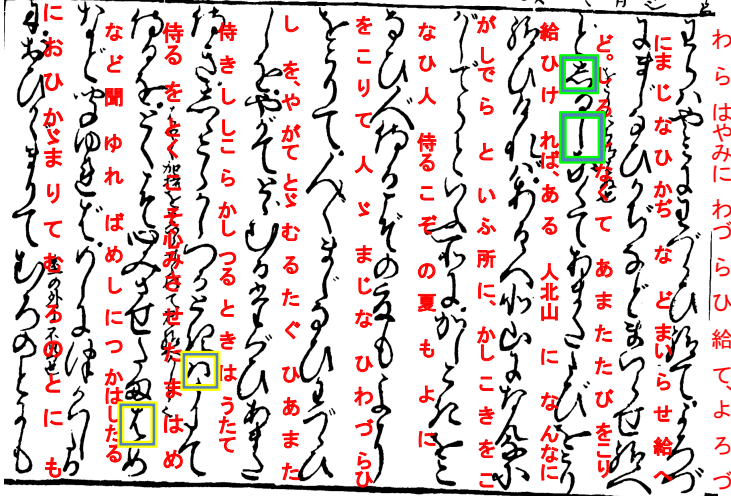 わらはやみにわづらひ給て、よろづ
にまじなひかぢなどまいらせ給へ
ど。しるしなくてあまたたびをこり
給ひければ、ある人北山になんなに
がしでらといふ所に、かしこきをこ
なひ人侍るこぞの夏もよに
をこりて人ゞまじなひわづらひ
しを、やがてとゞむるたぐひあまた
侍きししこらかしつるときはうたて
侍るをとくこそ心みさせたまはめ
など聞ゆればめしにつかはしたる
におひかゞまりてむろのとにも